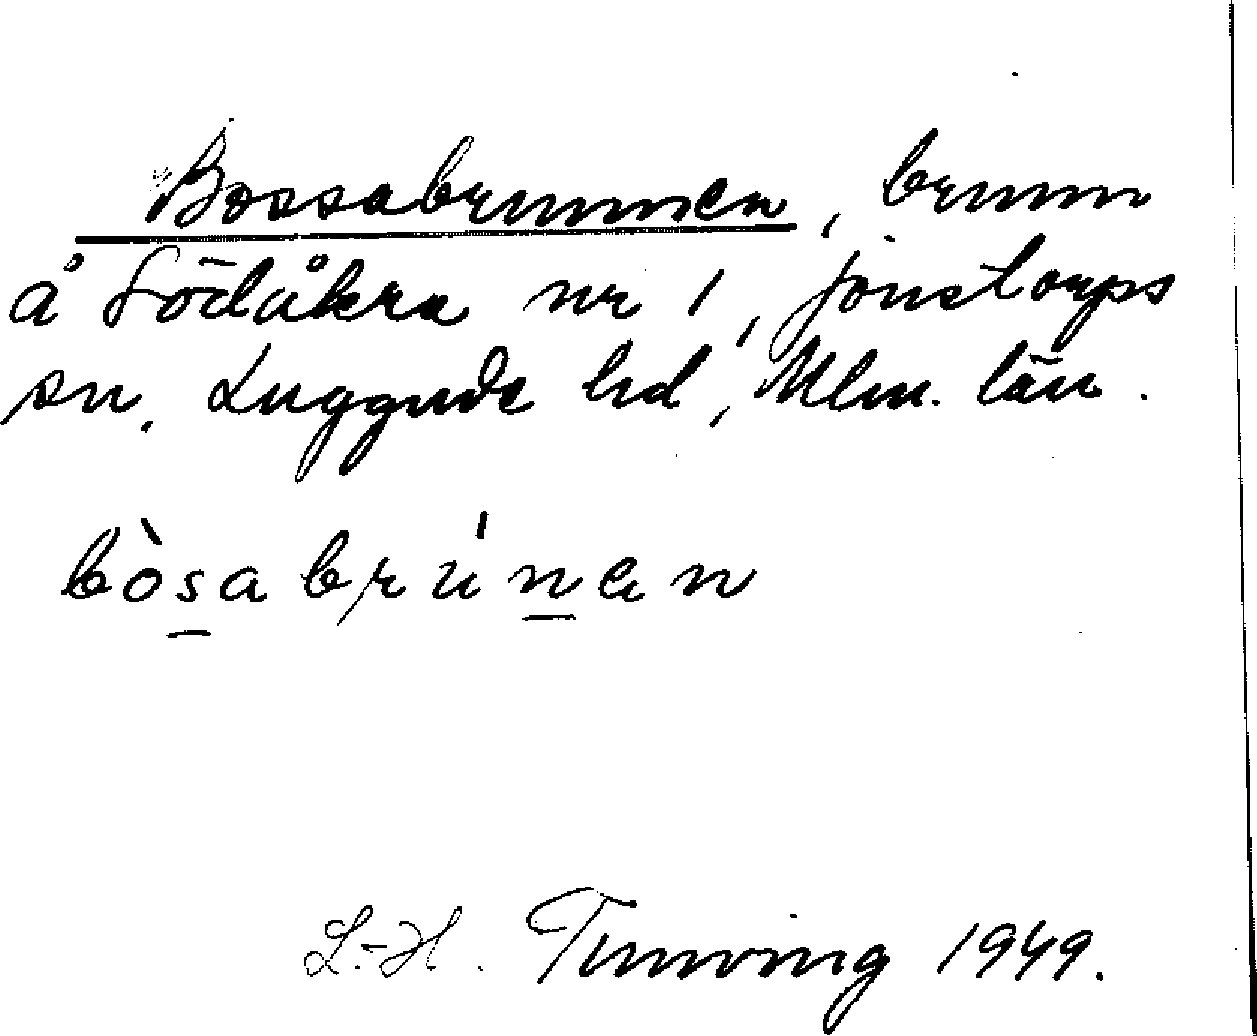 Bossabrunnen, brunn
å Södåkra nr 1, Jonstorps
sn, Luggude hd, Mlm. län.
bòsabrúnen
L.-H. Tunving 1949.